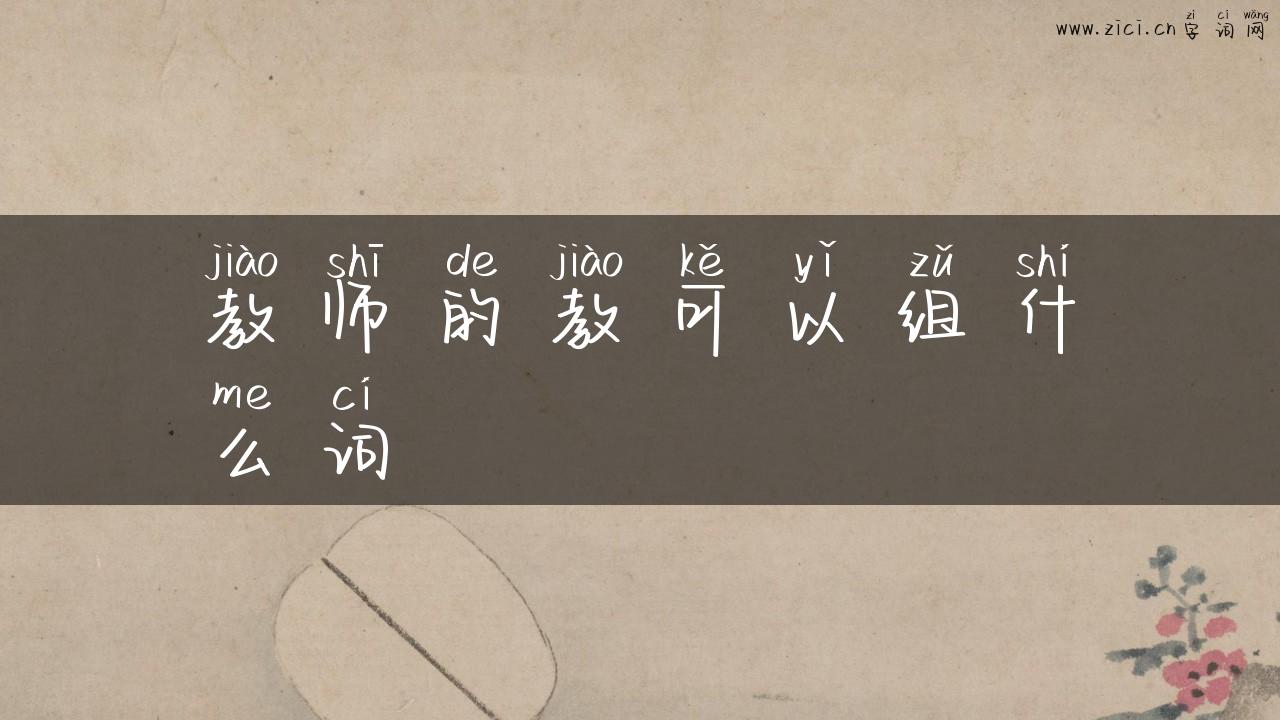 zì cí wǎng
www.zici.cn 字词网
jiào shī de jiào kě yǐ zǔ shí
教师的教可以组什
me cí
么词